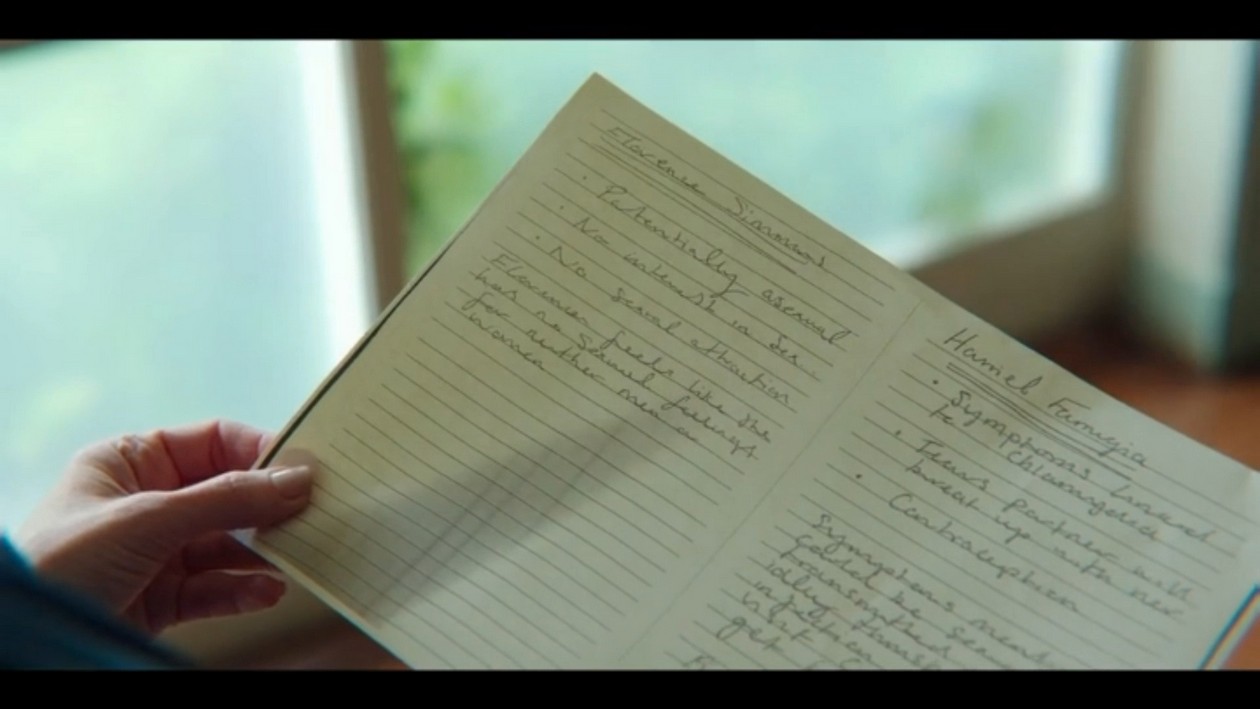 Florence Simmons
• Potentially asexual
• No interest in sex.
• No sexual attraction
Florence feels like she
has no sexual feelings
for neither men or
women
Harriet
• Symptoms linked
to Chlamydia
• Fears partner will
break up with her
• Contraception
Symptoms
could be
transmitted
infection
get